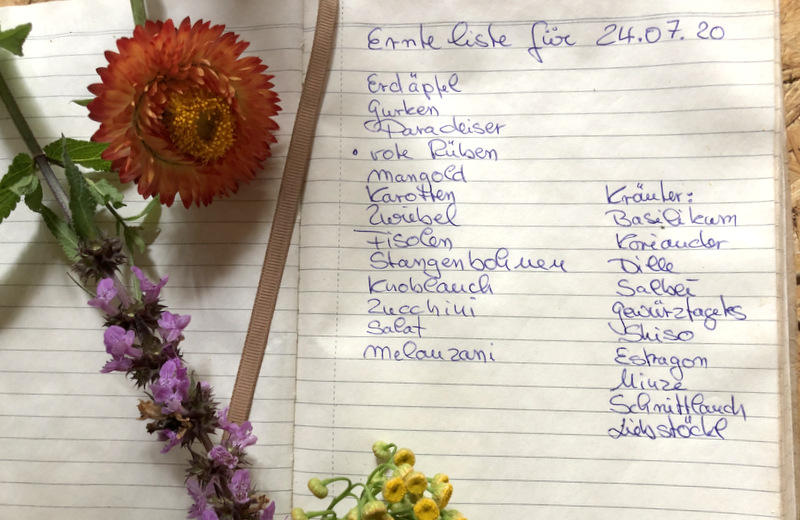 Ernte liste für 24.07.20
Erdäpfel
Gurken
Paradeiser
• rote Rüben
Mangold
Karotten
Zwiebel
Fisolen
Stangenbohnen
Knoblauch
Zucchini
Salat
Melanzani
Kräuter:
Basilikum
Koriander
Dille
Salbei
Gewürztagets
Shiso
Estragon
Minze
Schnittlauch
Liebstöckl